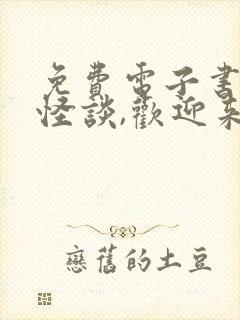 免費電子書
怪談,歡迎來
戀舊的土豆